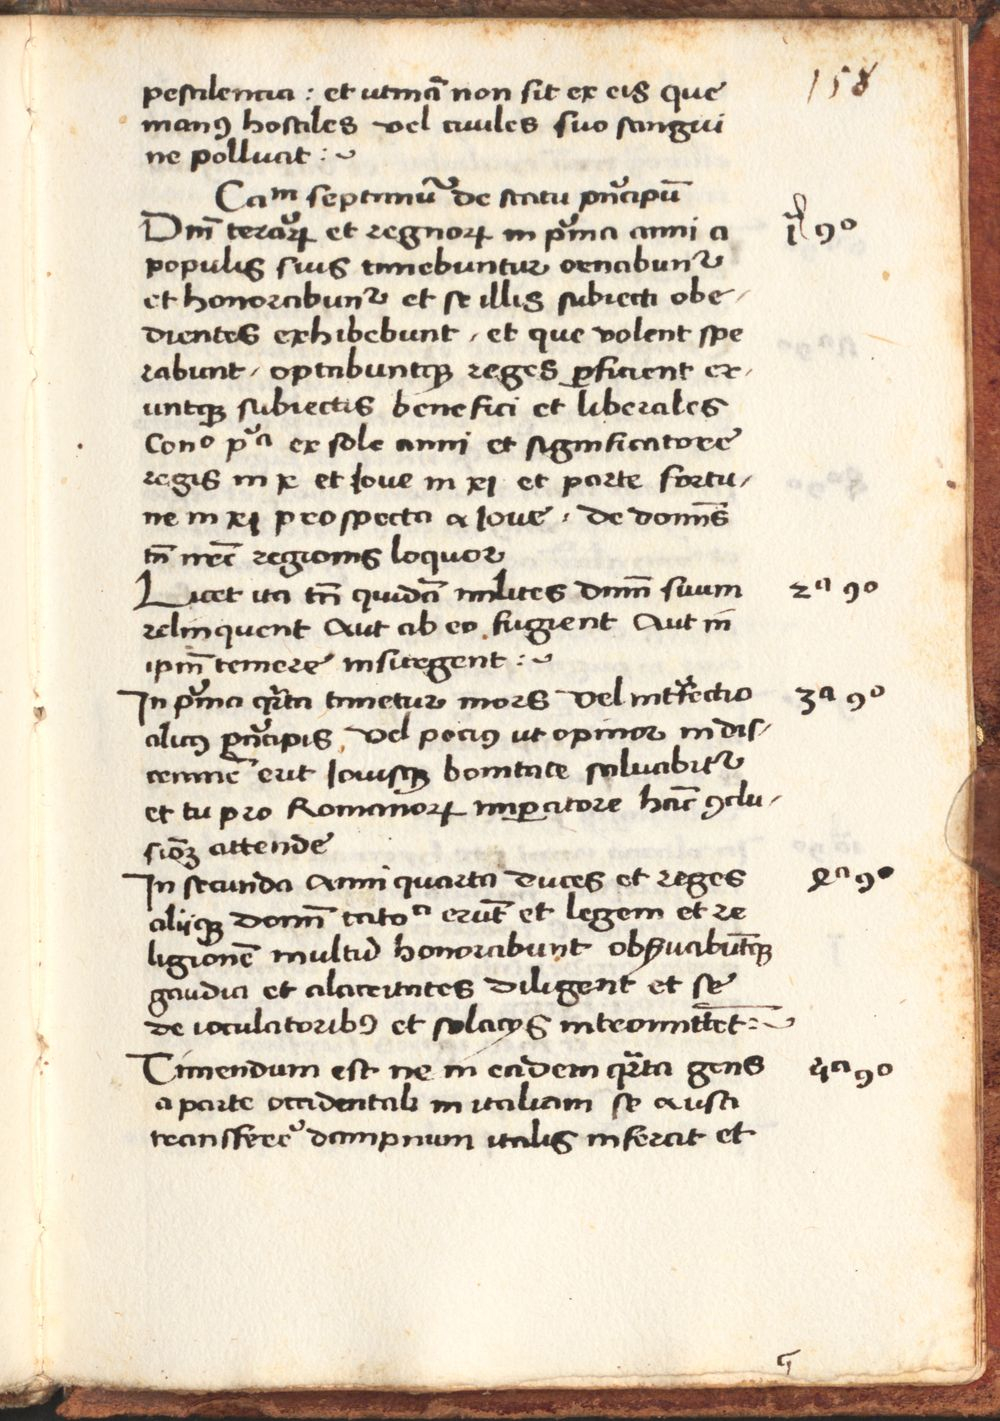 158
pestilencia : et utinā non sit ex eis que
manꝯ hostiles vel ciuiles suo sangui
ne polluat :~
Caᵐ septimū de statu pn̄cipū
Dn̄i terraꝝ et regnoꝝ in p̄ma anni a pͣ 9º
populis suis timebuntur venabunᵗ
et honorabunᵗ et se illis subiecti obe-
dientes exhibebunt, et que volent spe
rabunt, optabuntqꝫ reges ꝑficient er,
untqꝫ subiectis benefici et liberales
Conº pᵃ ex sole anni et significatore
regis in x et Ioue in xi et parte fortu,
ne in xi prospecta a Ioue, de domīs
tn̄ nr̄e regionis loquor
Licet ita tn̄ quidā milites dnm̄ suum 2ᵃ 9º
relinquent Aut ab eo fugient Aut in
ipm̄ temere insurgent :~
In p̄ma qr̄ta timetur mors vel int̄fectio 3ᵃ 9º
alicꝯ pn̄cipis, Vel pociꝯ ut opinor in dis-
crimīe erit Iouisqꝫ bonitate saluabitᵗ
et tu pro Romanoꝝ imꝑatore hāc ꝯclu-
siōꝫ attende
In secunda Anni quarta duces et reges 4ᵃ 9º
aliiqꝫ domī erūt et legem et re
ligionē multū honorabunt obẜuabūtqꝫ
gaudia et alacritates diligent et se
de ioculatoribꝯ et solacijs intromittēt :~
Timendum est ne in eadem qr̄ta gens 5ᵃ 9º
a parte occidentali in italiam se
transferēs dampnum italis inferat et